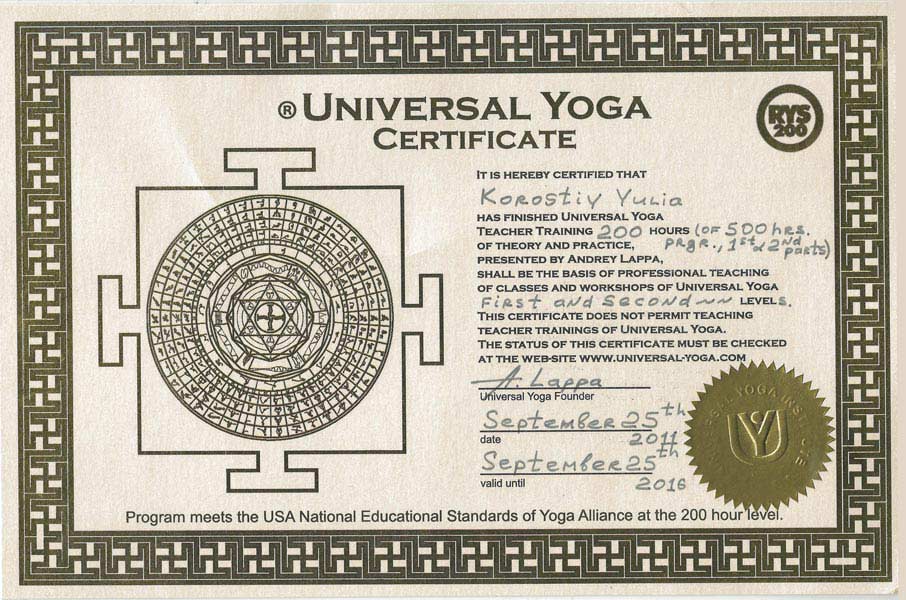 ® UNIVERSAL YOGA
CERTIFICATE
RYS
200
IT IS HEREBY CERTIFIED THAT
Korostiy Yulia
HAS FINISHED UNIVERSAL YOGA
TEACHER TRAINING 200 HOURS (of 500 hrs.
OF THEORY AND PRACTICE, prgr., 1st & 2nd parts)
PRESENTED BY ANDREY LAPPA,
SHALL BE THE BASIS OF PROFESSIONAL TEACHING
OF CLASSES AND WORKSHOPS OF UNIVERSAL YOGA
First and Second LEVELs.
THIS CERTIFICATE DOES NOT PERMIT TEACHING
TEACHER TRAININGS OF UNIVERSAL YOGA.
THE STATUS OF THIS CERTIFICATE MUST BE CHECKED
AT THE WEB-SITE WWW.UNIVERSAL-YOGA.COM
A. Lappa
Universal Yoga Founder
September 25th
date 2011
September 25th
valid until 2016
YOGA
Program meets the USA National Educational Standards of Yoga Alliance at the 200 hour level.